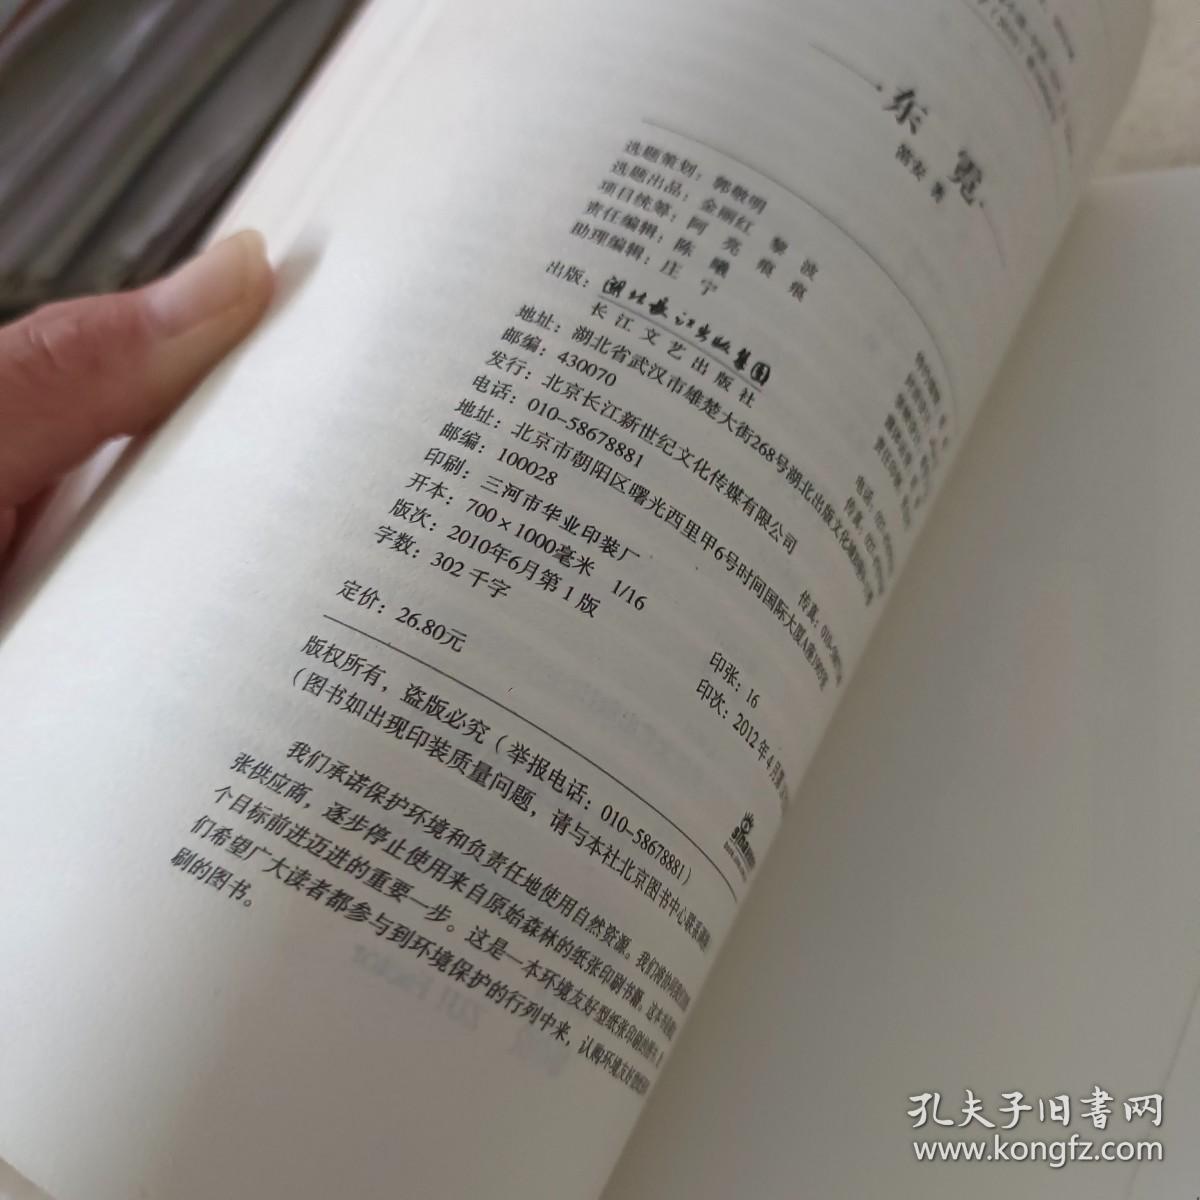 东 霓
笛安 著
选题策划：郭敬明
选题出品：金丽红 黎波
项目统筹：阿亮 痕痕
责任编辑：陈曦
助理编辑：庄宁
出版：湖北长江出版集团
长江文艺出版社
地址：湖北省武汉市雄楚大街268号湖北出版文化城
邮编：430070
发行：北京长江新世纪文化传媒有限公司
电话：010-58678881 传真：010-
地址：北京市朝阳区曙光西里甲6号时间国际大厦A座
邮编：100028
印刷：三河市华业印装厂
开本：700×1000毫米 1/16 印张：16
版次：2010年6月第1版 印次：2012年4月第
字数：302千字
定价：26.80元
版权所有，盗版必究（举报电话：010-58678881）
（图书如出现印装质量问题，请与本社北京图书中心联系
我们承诺保护环境和负责任地使用自然资源。我们将
张供应商，逐步停止使用来自原始森林的纸张印刷书籍。这本
个目标前进迈进的重要一步。这是一本环境友好型纸张印刷的图书。
们希望广大读者都参与到环境保护的行列中来，认购环境友好型纸张印
刷的图书。
孔夫子旧书网
www.kongfz.com